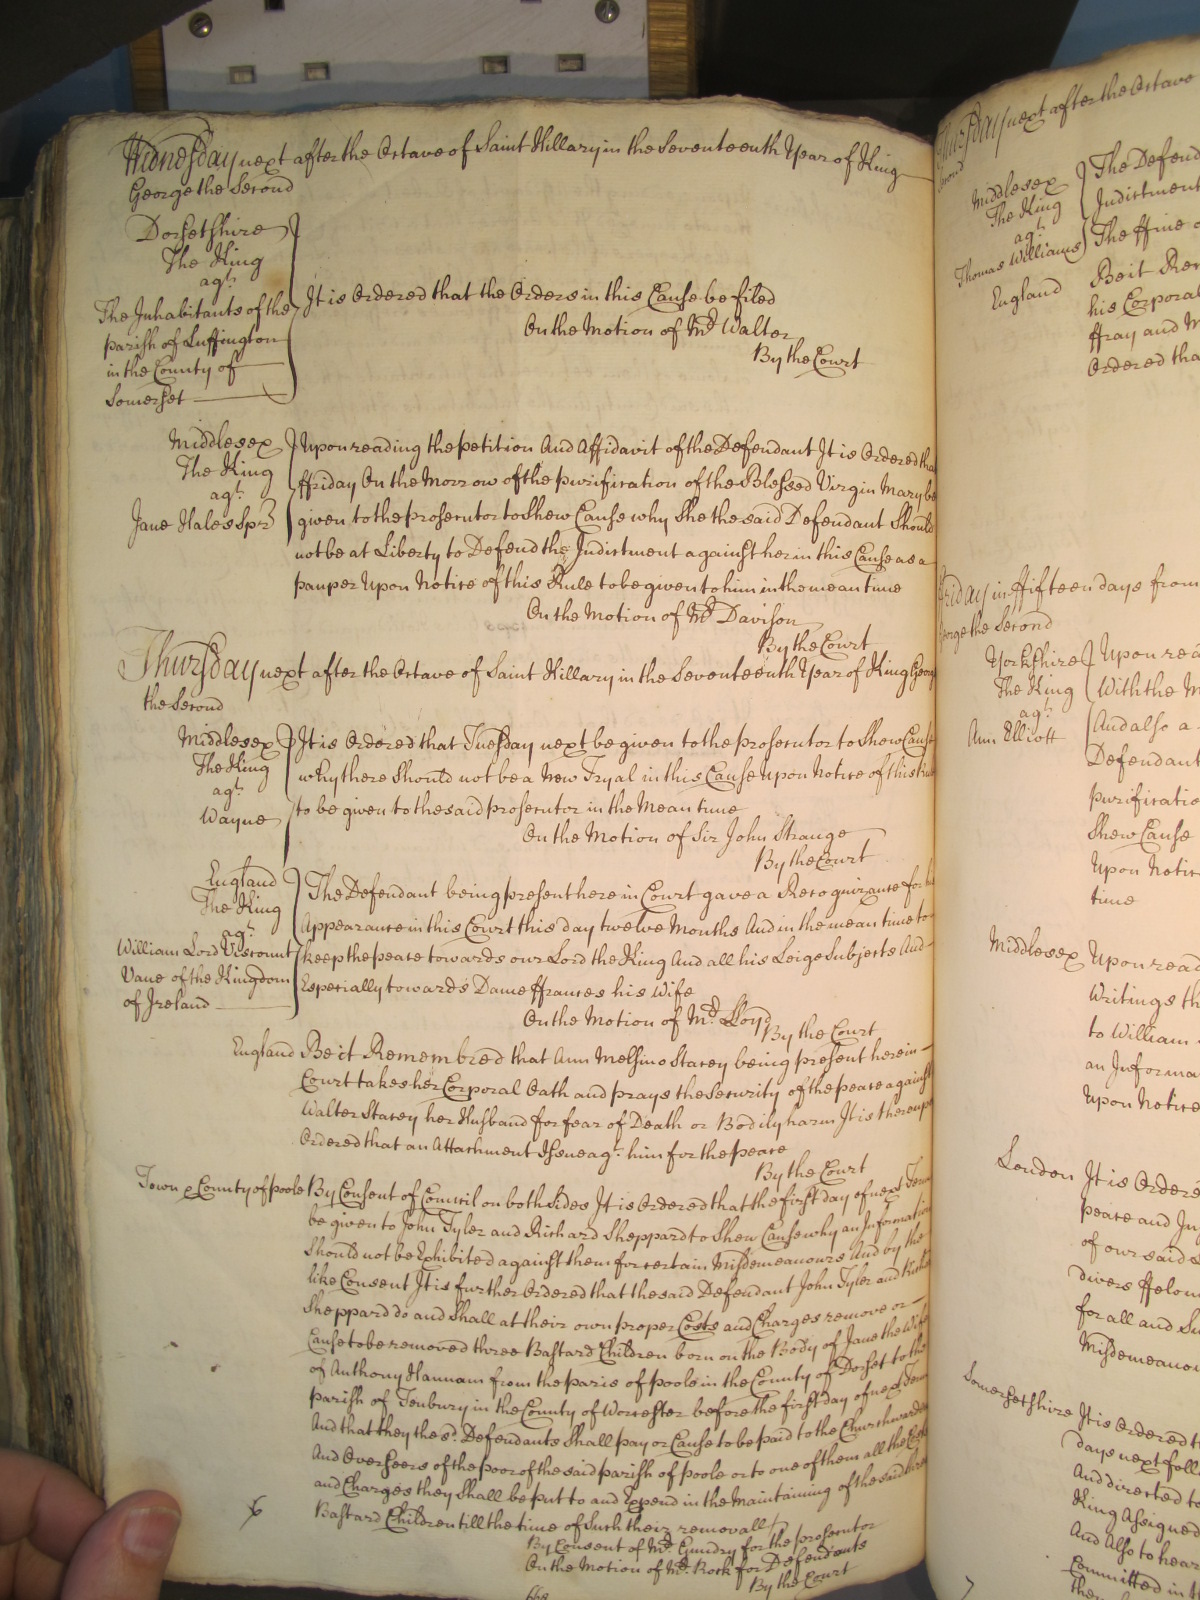 Wednesday next after the Octave of Saint Hillary in the Seventeenth Year of King
George the Second
Dorsetshire
The King
agt.
The Inhabitants of the
parish of Luffington
in the County of
Somerset
It is Ordered that the Orders in this Cause be filed
On the Motion of Mr. Walter
By the Court
Middlesex
The King
agt.
Jane Hales Spr.
Upon reading the petition And Affidavit of the Defendant It is Ordered that
ffriday On the Morrow of the purification of the Blessed Virgin Mary be
given to the prosecutor to Shew Cause why She the said Defendant Should
not be at Liberty to Defend the Indictment against her in this Cause as a
pauper Upon Notice of this Rule to be given to him in the mean time
On the Motion of Mr. Davison
By the Court
Thursday next after the Octave of Saint Hillary in the Seventeenth Year of King George
the Second
Middlesex
The King
agt.
Wayne
It is Ordered that Tuesday next be given to the prosecutor to Shew Cause
why there Should not be a New Tryal in this Cause upon Notice of this
to be given to the said prosecutor in the Mean time
On the Motion of Sir John Strange
By the Court
England
The King
agt.
William Lord Viscount
Vane of the Kingdom
of Ireland
The Defendant being present here in Court gave a Recognizance for his
Appearance in this Court this day twelve Months And in the mean time to
keep the peace towards our Lord the King And all his Leige Subjects And
Especially towards Dame ffrances his Wife
On the Motion of Mr. Lloyd
By the Court
England Be it Remembred that Ann Stacey being present here in
Court takes her Corporal Oath and prays the Security of the peace against
Walter Stacey her Husband for fear of Death or Bodily harm It is thereupon
Ordered that an Attachment Issue agt. him for the peace
By the Court
Town & County of poole By Consent of Councill on both Sides It is Ordered that the first day of next Term
be given to John Tyler and Richard Sheppard to Shew Cause why an Information
Should not be Exhibited against them for certain Misdemeanours And by the
like Consent It is further Ordered that the said Defendant John Tyler and Richard
Sheppard do and Shall at their own proper Costs and Charges remove or
Cause to be removed three Bastard Children born on the Body of Jane the Wife
of Anthony Hannam from the paris of poole in the County of Dorset to the
parish of Tenbury in the County of Worcester before the first day of next Term
And that they the sd. Defendants Shall pay or Cause to be paid to the Churchwardens
And Overseers of the poor of the said parish of poole or to one of them all the Costs
and Charges they Shall be put to and Expend in the Maintaining of the said three
Bastard Children till the time of Such their removall
By Consent of Mr. Gundry for the prosecutor
On the Motion of Mr. Rock for Defendants
By the Court
Thursday next after the Octave
Second
Middlesex
The King
agt.
Thomas Williams
The Defend
Indictment
The ffine
England
Be it Rem
his Corporal
ffray and M
Ordered tha
ffriday in ffifteen days from
George the Second
Yorkshire
The King
agt.
Ann Elliott
Upon rea
With the M
And also a
Defendant
purificatio
Shew Cause
Upon Notic
time
Middlesex Upon read
Writings th
to William
an Informa
Upon Notice
London It is Ordere
peace and In
of our said
divers ffelon
for all and Su
Misdemeanou
Somersetshire It is Ordered t
days next foll
And directed to
King Assigned
And Also to hear
Committed in t